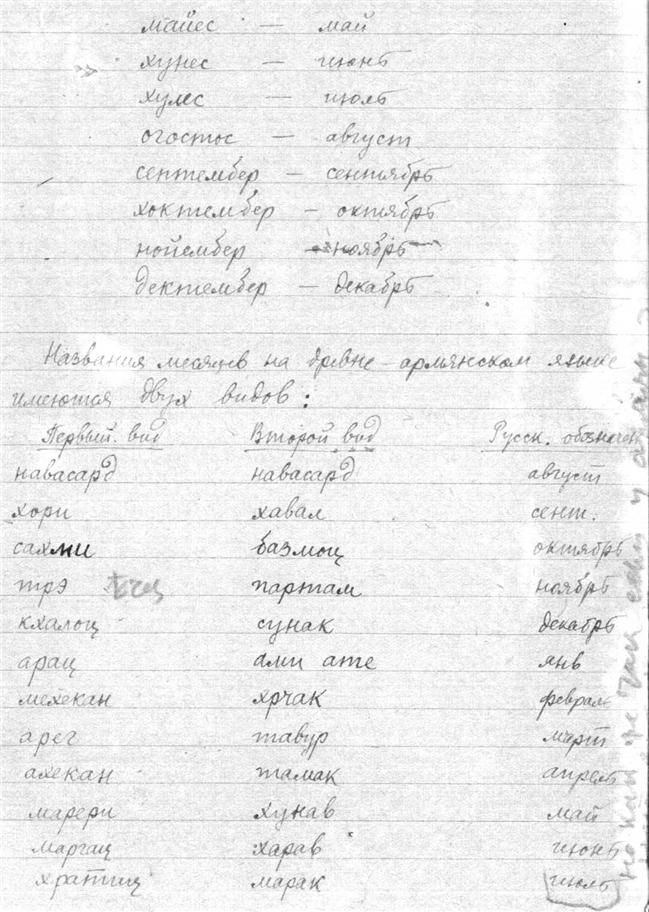 майес — май
хунес — июнь
хулес — июль
огостос — август
сентембер — сентябрь
хоктембер — октябрь
нойембер — ноябрь
дектембер — декабрь
Названия месяцев на древне-армянском языке
имеются двух видов:
Первый вид Второй вид Русск. обознач
навасард навасард август
хори хавал сент.
сахми базмоц октябрь
трэ партам ноябрь
кхалоц сунак декабрь
арац ами ате янв
мехекан хрчак февраль
арег тавур март
ахекан тамак апрель
марери хунав май
маргац харав июнь
хратиц марак июль